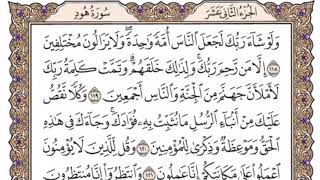 الجزء الثاني عشر سورة هود
وَلَوْ شَاءَ رَبُّكَ لَجَعَلَ النَّاسَ أُمَّةً وَاحِدَةً وَلَا يَزَالُونَ مُخْتَلِفِينَ
﴿١١٨﴾ إِلَّا مَن رَّحِمَ رَبُّكَ وَلِذَٰلِكَ خَلَقَهُمْ وَتَمَّتْ كَلِمَةُ رَبِّكَ
لَأَمْلَأَنَّ جَهَنَّمَ مِنَ الْجِنَّةِ وَالنَّاسِ أَجْمَعِينَ ﴿١١٩﴾ وَكُلًّا نَّقُصُّ
عَلَيْكَ مِنْ أَنبَاءِ الرُّسُلِ مَا نُثَبِّتُ بِهِ فُؤَادَكَ وَجَاءَكَ فِي هَٰذِهِ
الْحَقُّ وَمَوْعِظَةٌ وَذِكْرَىٰ لِلْمُؤْمِنِينَ ﴿١٢٠﴾ وَقُل لِّلَّذِينَ لَا يُؤْمِنُونَ
اعْمَلُوا عَلَىٰ مَكَانَتِكُمْ إِنَّا عَامِلُونَ ﴿١٢١﴾ وَانتَظِرُوا إِنَّا مُنتَظِرُونَ